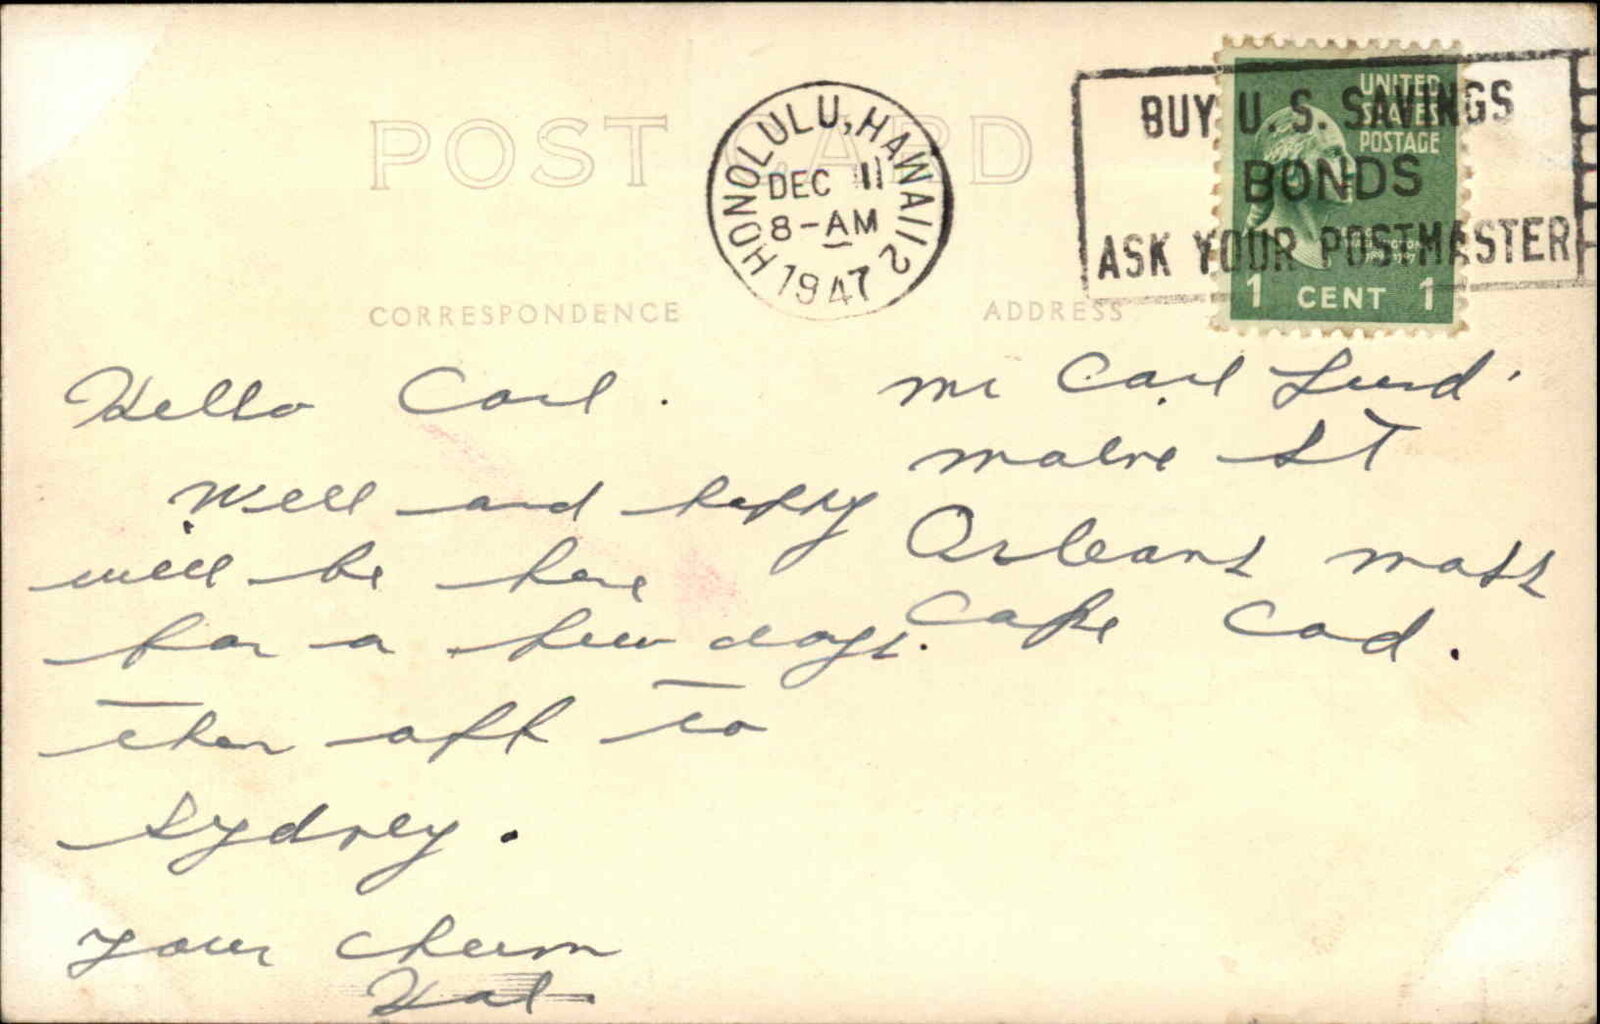 POST CARD
HONOLULU, HAWAII 2
DEC 11
8-AM
1947
BUY U.S. SAVINGS
BONDS
ASK YOUR POSTMASTER
UNITED
STATES
POSTAGE
1 CENT 1
CORRESPONDENCE
ADDRESS
Hello Carl.
Well and happy
will be here
for a few days.
then off to
Sydney.
your chum
Mr Carl Lund
St
Orleans Mass
Cape Cod.